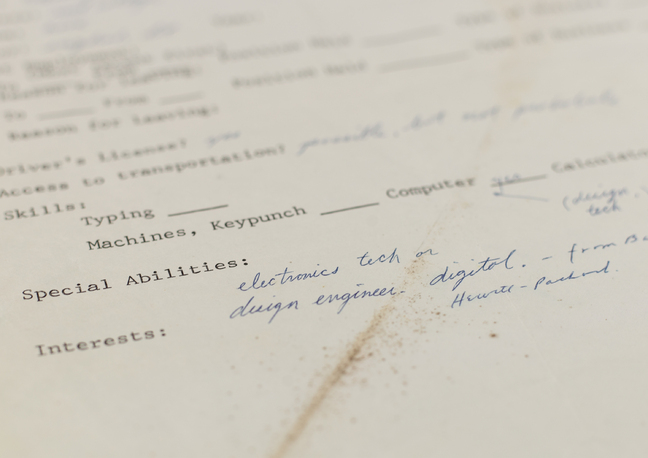 Reason for leaving:
To From
Reason for leaving:
Driver's License? yes
Access to transportation? possible, but not probable
Skills:
Typing
Machines, Keypunch Computer yes Calculator
(design, tech)
Special Abilities: electronics tech or
design engineer. digital. - from Ba
Hewitt-Packard.
Interests: